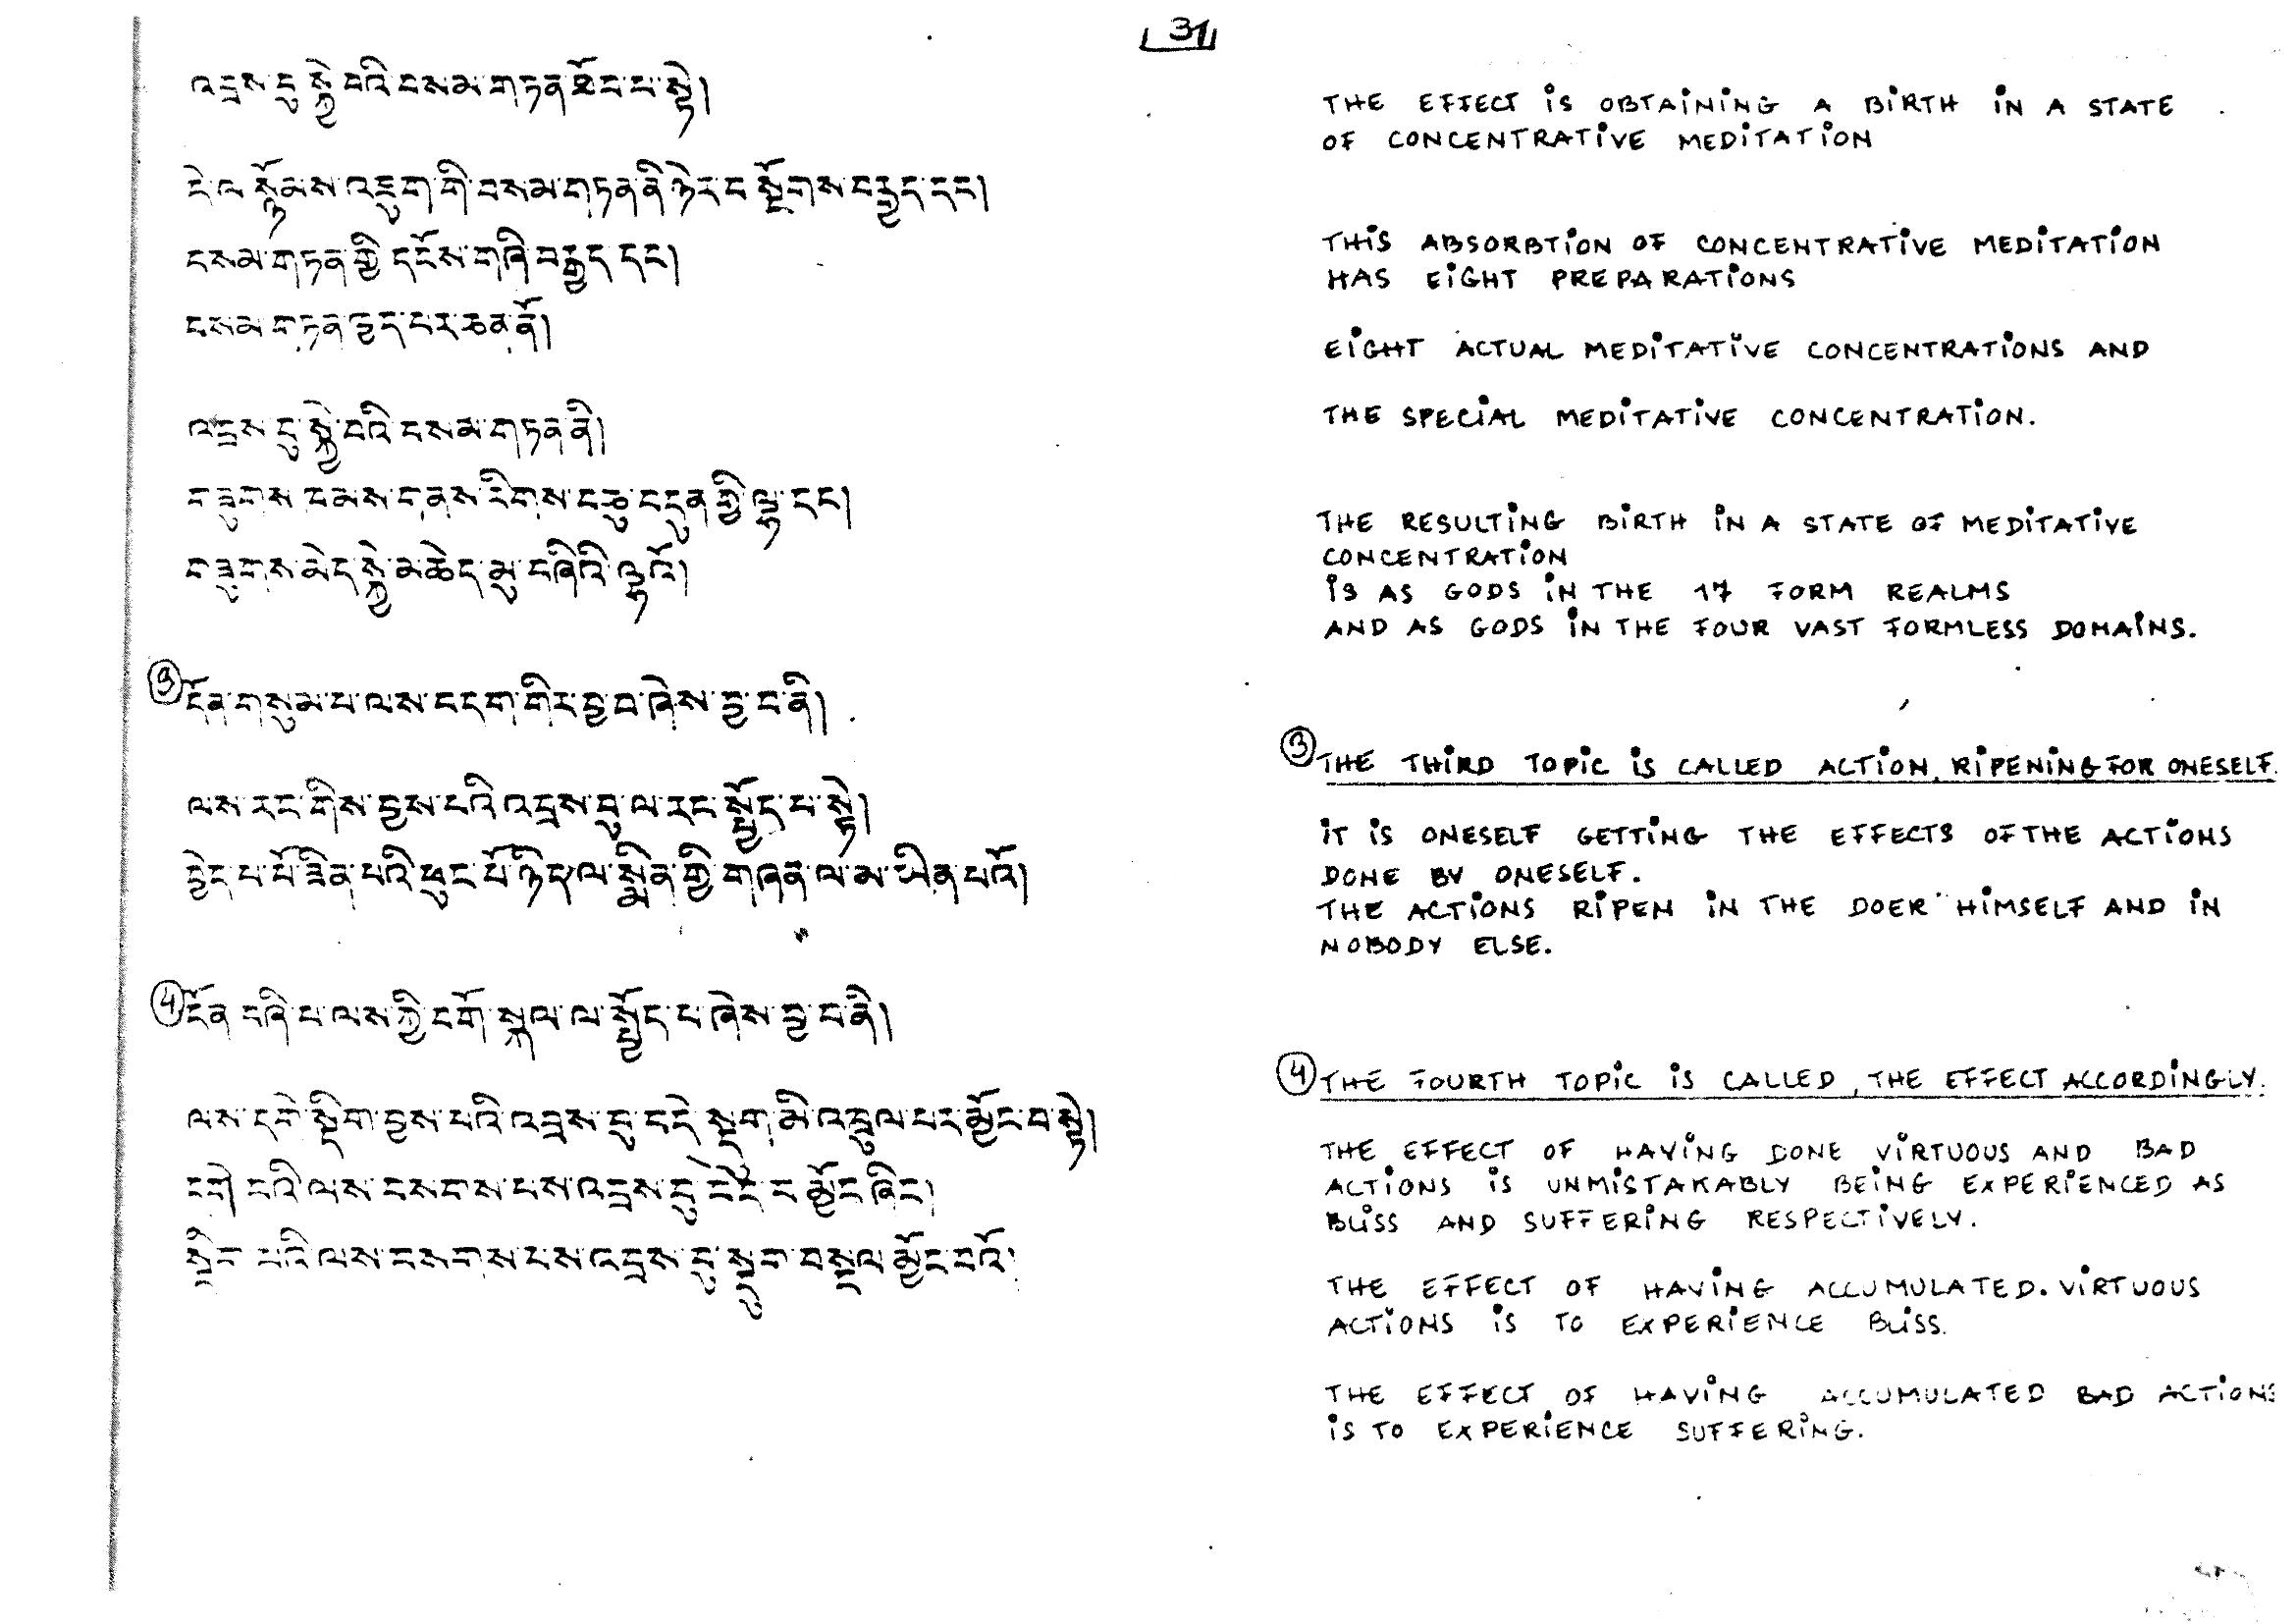 31
འབྲས་བུ་སྐྱེ་བའི་བསམ་གཏན་ཐོབ་པ་སྟེ།
དེ་ལ་སྙོམས་འཇུག་གི་བསམ་གཏན་ནི་ཉེར་བསྡོགས་བརྒྱད་དང།
བསམ་གཏན་གྱི་དངོས་གཞི་བརྒྱད་དང།
བསམ་གཏན་ཁྱད་པར་ཅན་ནོ།
འབྲས་བུ་སྐྱེ་བའི་བསམ་གཏན་ནི།
གཟུགས་ཁམས་གནས་རིགས་བཅུ་བདུན་གྱི་ལྷ་དང།
གཟུགས་མེད་སྐྱེ་མཆེད་མུ་བཞིའི་ལྷའོ།
③ དོན་གསུམ་པ་ལས་བདག་གིར་བྱ་བ་ཞེས་བྱ་བ་ནི།
ལས་རང་གིས་བྱས་པའི་འབྲས་བུ་ལ་རང་སྤྱོད་པ་སྟེ།
བྱེད་པ་པོ་ཟིན་པའི་ཕུང་པོ་ཉིད་ལ་སྨིན་གྱི་གཞན་ལ་མ་ཡིན་པའོ།
④ དོན་བཞི་པ་ལས་ཀྱི་བགོ་སྐལ་ལ་སྤྱོད་པ་ཞེས་བྱ་བ་ནི།
ལས་དགེ་སྡིག་བྱས་པའི་འབྲས་བུ་བདེ་སྡུག་མི་འཁྲུལ་པར་མྱོང་བ་སྟེ།
དགེ་བའི་ལས་བསགས་པས་འབྲས་བུ་བདེ་བ་མྱོང་ཞིང།
སྡིག་པའི་ལས་བསགས་པས་འབྲས་བུ་སྡུག་བསྔལ་མྱོང་བའོ།
THE EFFECT IS OBTAINING A BIRTH IN A STATE
OF CONCENTRATIVE MEDITATION
THIS ABSORBTION OF CONCENTRATIVE MEDITATION
HAS EIGHT PREPARATIONS
EIGHT ACTUAL MEDITATIVE CONCENTRATIONS AND
THE SPECIAL MEDITATIVE CONCENTRATION.
THE RESULTING BIRTH IN A STATE OF MEDITATIVE
CONCENTRATION
IS AS GODS IN THE 17 FORM REALMS
AND AS GODS IN THE FOUR VAST FORMLESS DOMAINS.
③ THE THIRD TOPIC IS CALLED ACTION, RIPENING FOR ONESELF.
IT IS ONESELF GETTING THE EFFECTS OF THE ACTIONS
DONE BY ONESELF.
THE ACTIONS RIPEN IN THE DOER HIMSELF AND IN
NOBODY ELSE.
④ THE FOURTH TOPIC IS CALLED, THE EFFECT ACCORDINGLY.
THE EFFECT OF HAVING DONE VIRTUOUS AND BAD
ACTIONS IS UNMISTAKABLY BEING EXPERIENCED AS
BLISS AND SUFFERING RESPECTIVELY.
THE EFFECT OF HAVING ACCUMULATED VIRTUOUS
ACTIONS IS TO EXPERIENCE BLISS.
THE EFFECT OF HAVING ACCUMULATED BAD ACTIONS
IS TO EXPERIENCE SUFFERING.